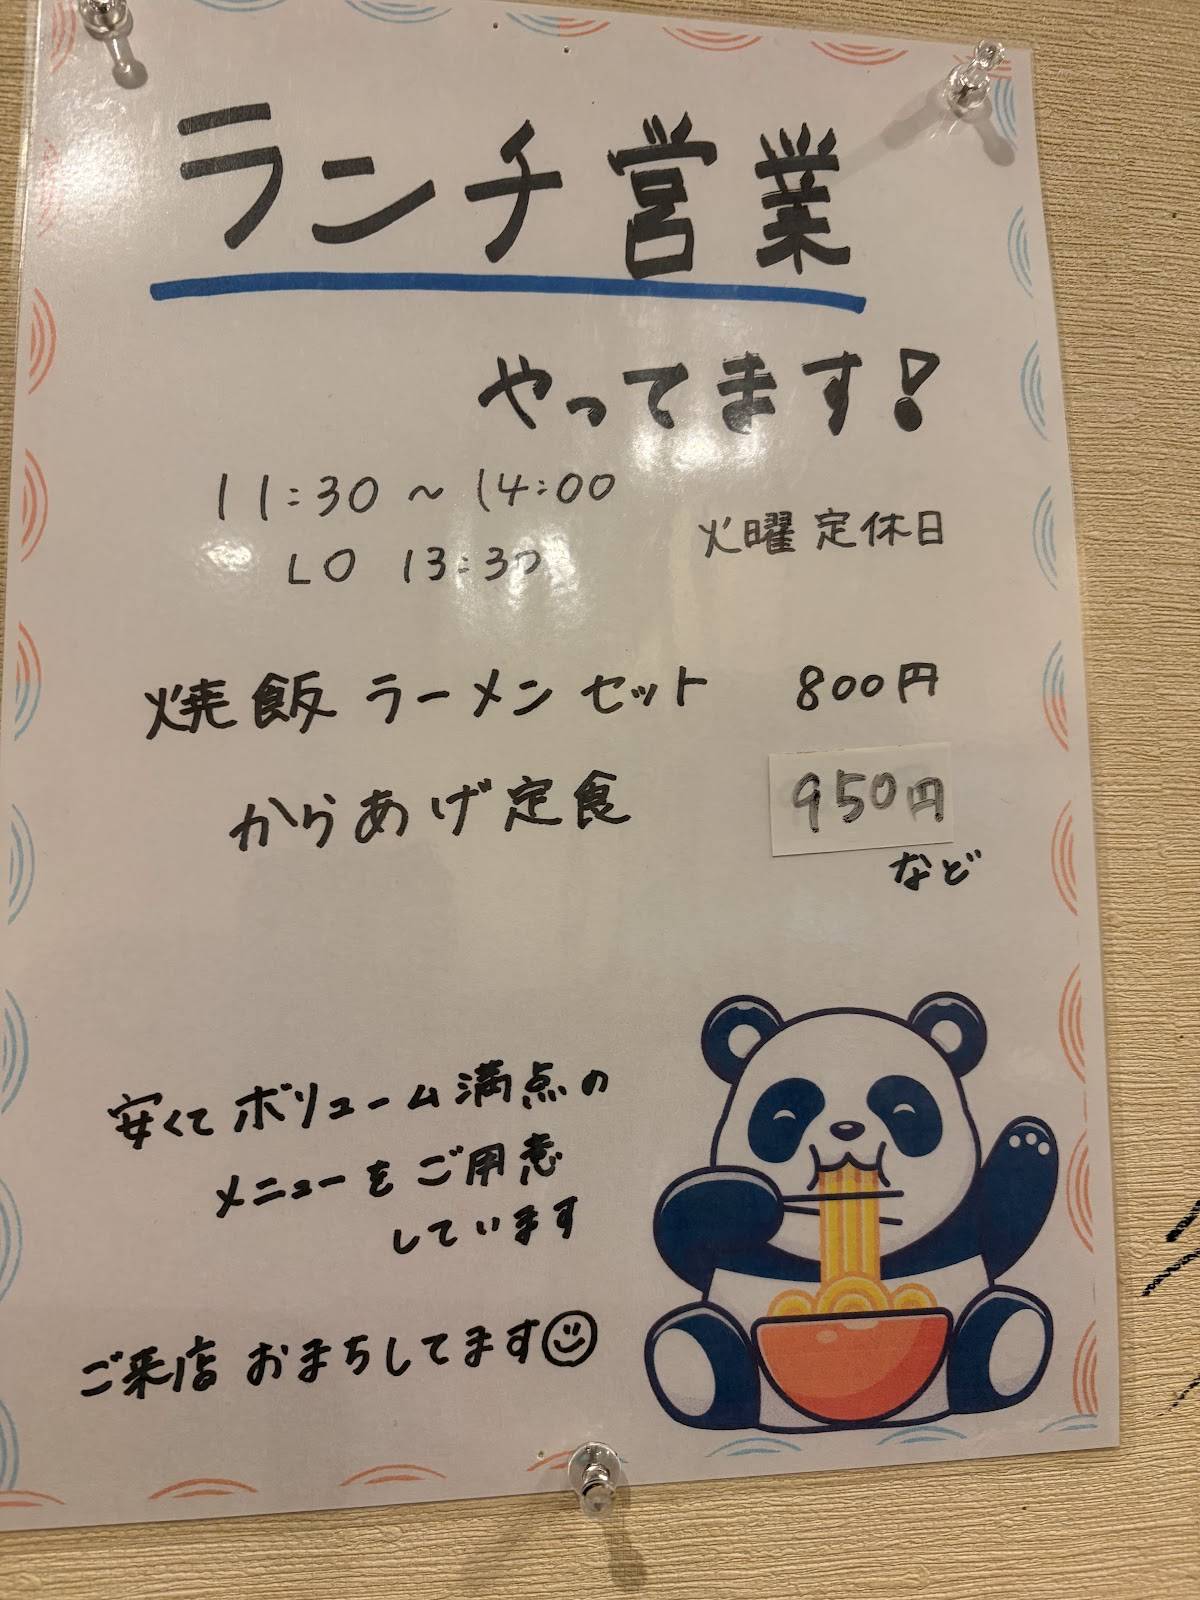 ランチ営業
やってます!
11:30~14:00
LO 13:30
火曜定休日
焼飯ラーメンセット 800円
からあげ定食 950円
など
安くてボリューム満点の
メニューをご用意
しています
ご来店おまちしてます☺